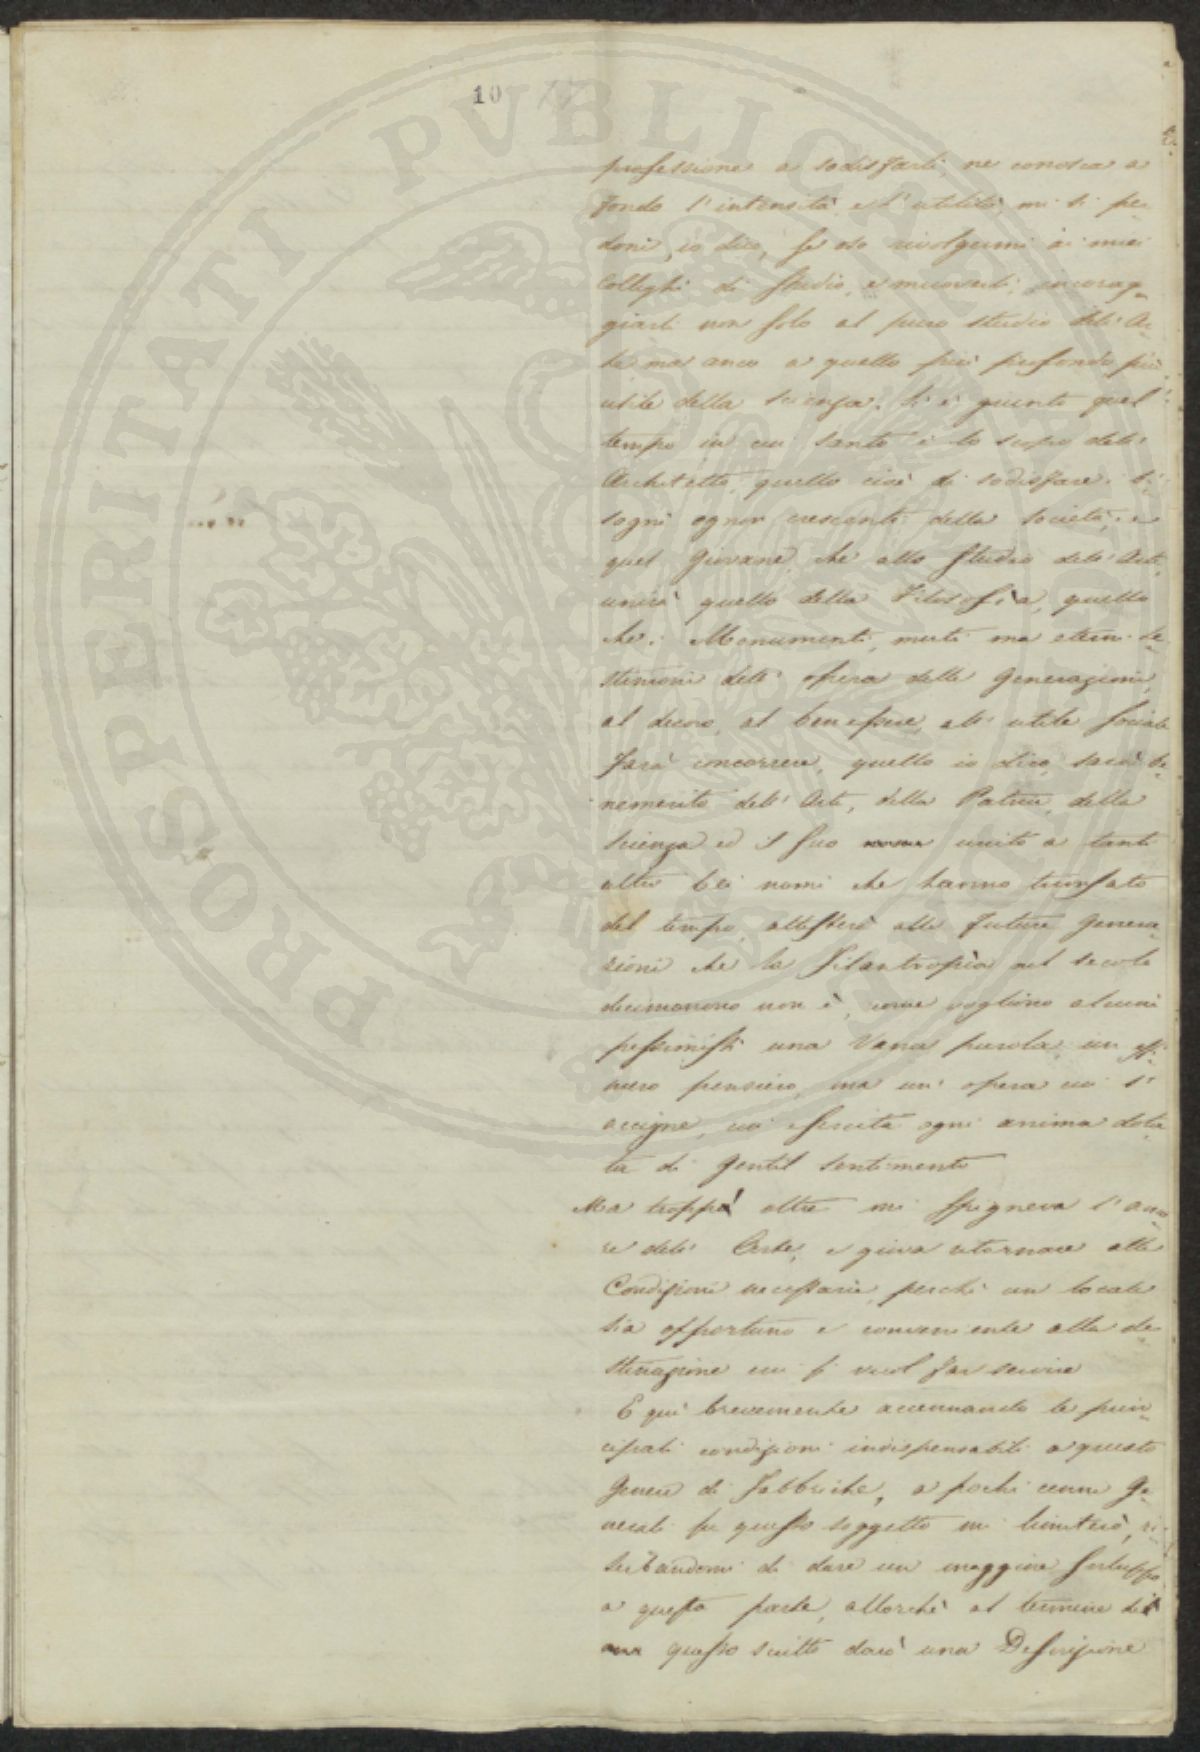 10 17
PROSPERITATI PVBLICAE
professione a sodisfarli, ne conosca a
fondo l'intensità e l'utilità, mi si per-
doni, io dico, se oso rivolgermi ai miei
Colleghi di studio, e muoverli, incorag-
giarli non solo al puro studio dell'Ar-
te ma anco a quello più profondo più
utile della scienza. Si è giunto quel
tempo in cui santo è lo scopo dell'
Architetto, quello cioè di sodisfare i bi-
sogni ognor crescenti della società; e
quel Giovane che allo studio dell'Arte
unirà quello della Filosofia, quello
che i Monumenti, muti ma eterni te-
stimoni dell'opera delle Generazioni,
al decoro, al benessere, all'utile sociale
farà concorrere, quello io dico, sarà be-
nemerito dell'Arte, della Patria, della
scienza ed il suo nome unito a tanti
altri bei nomi che hanno trionfato
del tempo, attesterà alle future genera-
zioni che la Filantropìa nel secolo
decimonono non è, come vogliono alcuni
pessimisti una vana parola, un effi-
mero pensiero, ma un'opera cui s'
accigne, cui esercita ogni anima dota-
ta di gentil sentimento
Ma troppo oltre mi spigneva l'amo-
re dell'Arte, e giova ritornare alle
Condizioni necessarie, perchè un locale
sia opportuno e conveniente alla de-
stinazione cui si vuol far servire
E quì brevemente accennando le prin-
cipali condizioni indispensabili a questo
genere di fabbriche, a pochi cenni ge-
nerali su questo soggetto mi limiterò, ri-
serbandomi di dare un maggiore sviluppo
a questa parte, allorchè al termine di
questo scritto darò una Descrizione